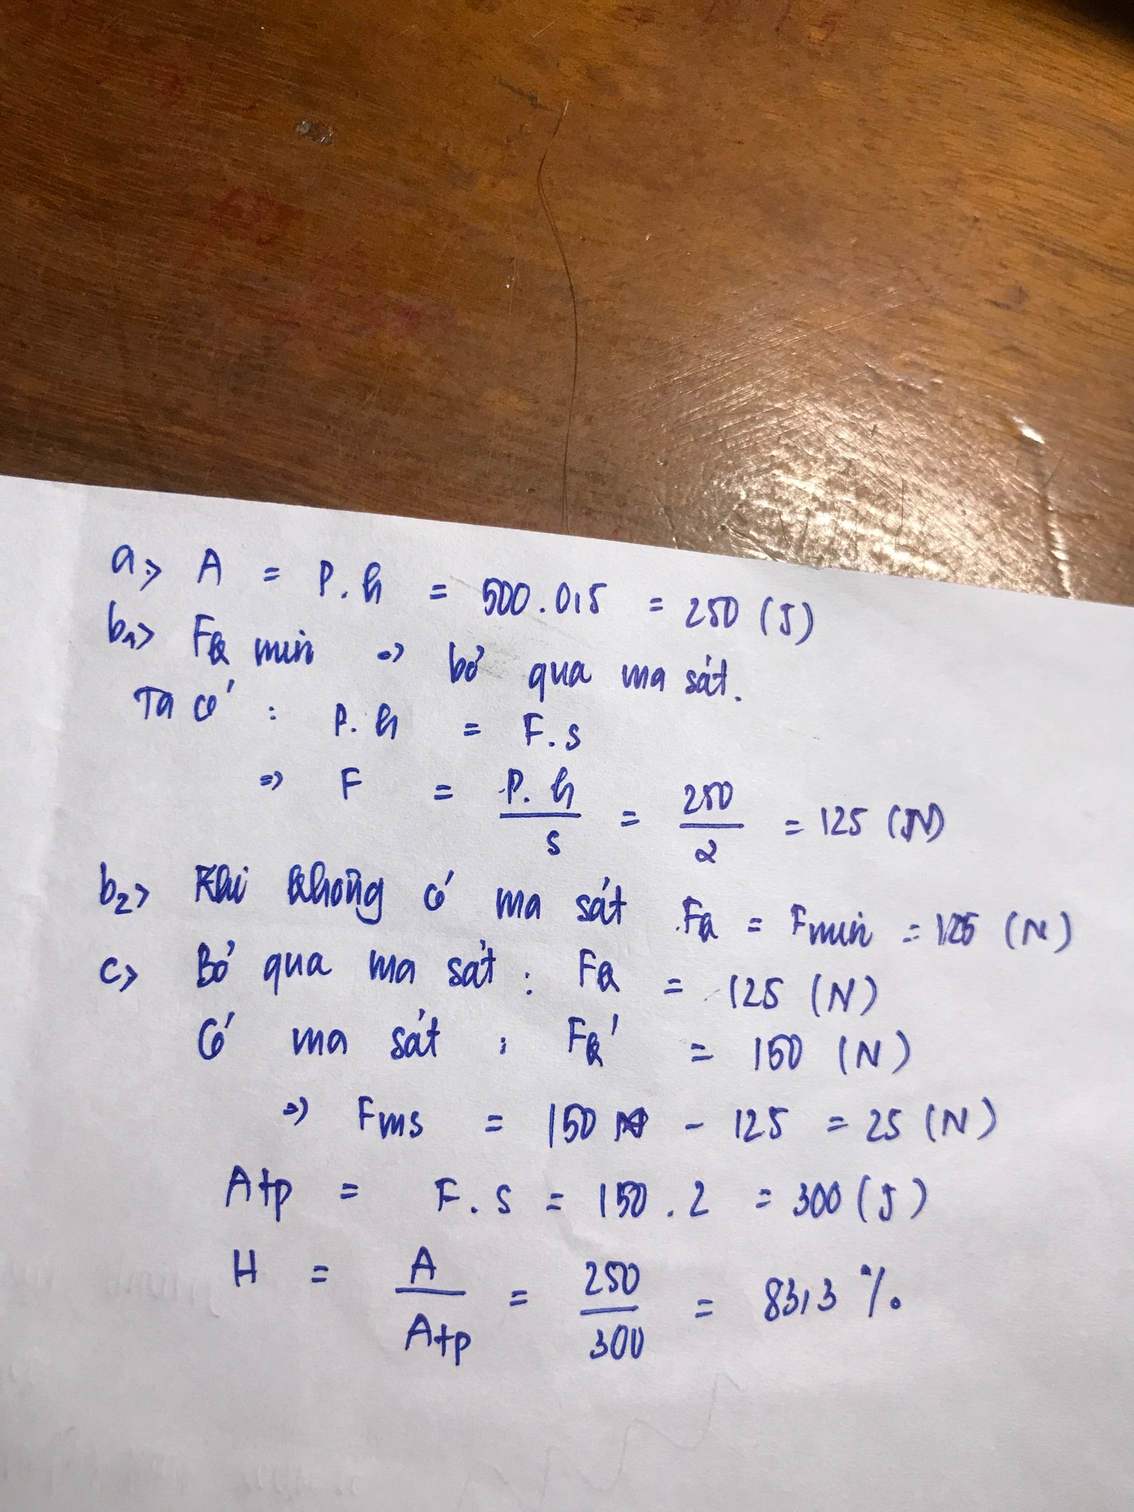 a> A = P.h = 500.0,5 = 250 (J)
b₁> Fk min => bỏ qua ma sát.
Ta có : P.h = F.s
=> F = P.h / s = 250 / 2 = 125 (N)
b₂> Khi không có ma sát Fk = Fmin = 125 (N)
c> Bỏ qua ma sát : Fk = 125 (N)
Có ma sát : Fk' = 150 (N)
=> Fms = 150 - 125 = 25 (N)
Atp = F.s = 150.2 = 300 (J)
H = A / Atp = 250 / 300 = 83,3 %